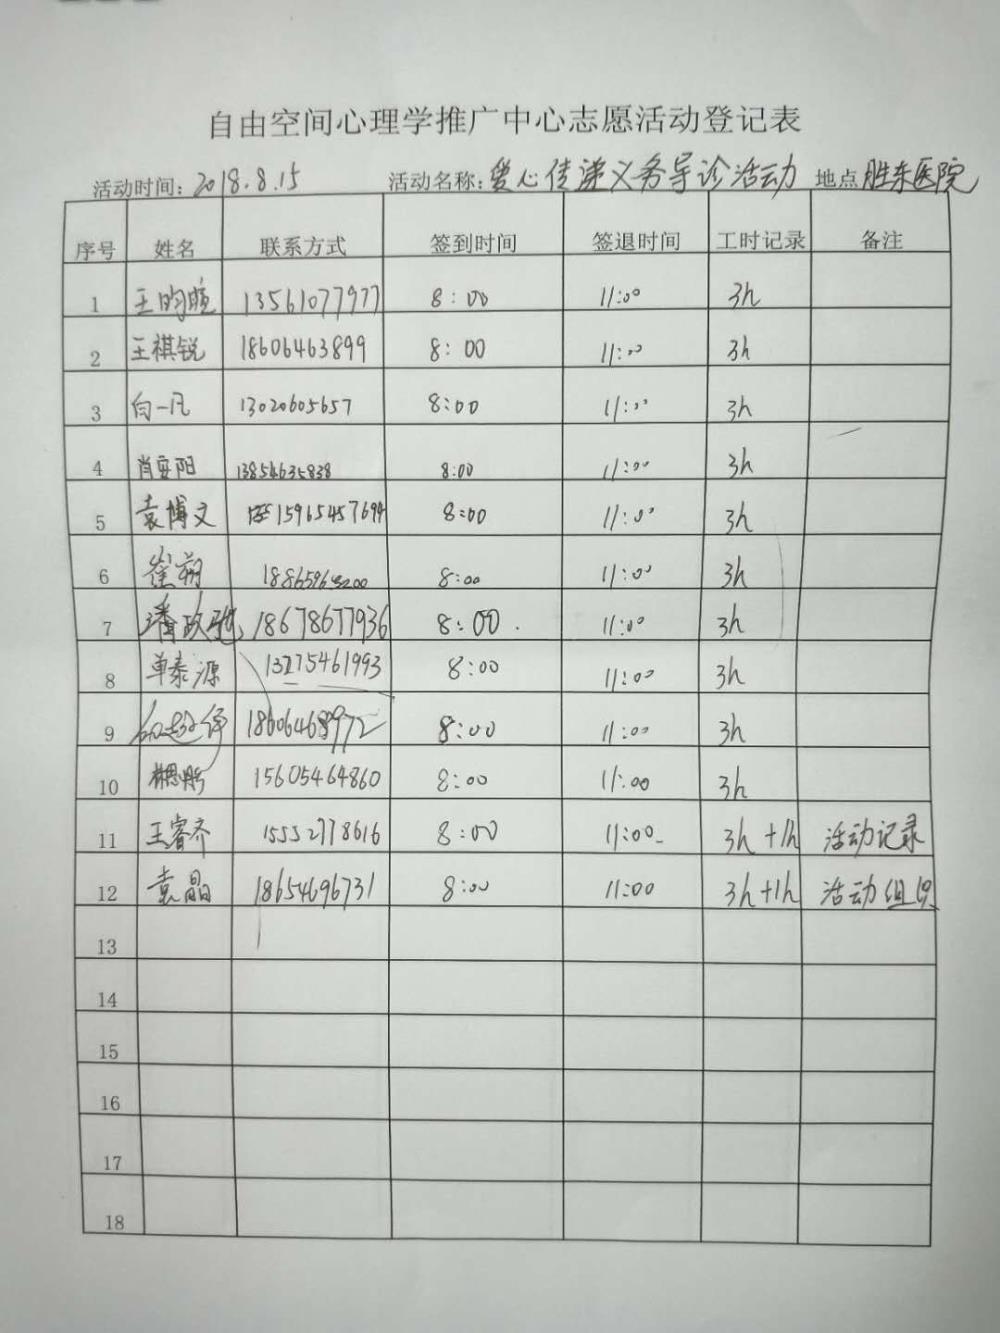 自由空间心理学推广中心志愿活动登记表
活动时间：2018.8.15 活动名称：爱心传递义务导诊活动 地点 胜东医院
序号 姓名 联系方式 签到时间 签退时间 工时记录 备注
1 王昀暄 13561077977 8:00 11:00 3h
2 王祺锐 18606463899 8:00 11:00 3h
3 向一凡 13020605657 8:00 11:00 3h
4 肖安阳 13854635838 8:00 11:00 3h
5 袁博文 15965457694 8:00 11:00 3h
6 崔朔 8:00 11:00 3h
7 潘政驰 18678677936 8:00 11:00 3h
8 单泰源 13275461993 8:00 11:00 3h
9 18606468972 8:00 11:00 3h
10 15605464860 8:00 11:00 3h
11 王睿齐 15552778616 8:00 11:00 3h+1h 活动记录
12 袁晶 18654696731 8:00 11:00 3h+1h 活动组织
13
14
15
16
17
18